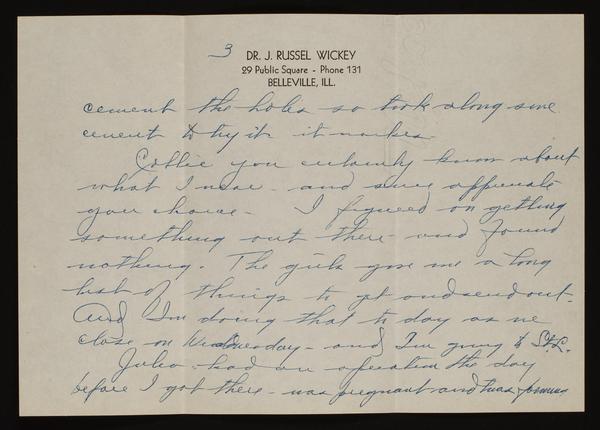 3
DR. J. RUSSEL WICKEY
29 Public Square - Phone 131
BELLEVILLE, ILL.
cement the holes - so took along some
cement to try it - it makes -
Collie you certainly know about
what I wear - and sure appreciate
your choice - I figured on getting
something out there - and found
nothing. The girls gave me a long
list of things to get and send out -
And I'm doing that to day as we
close on Wednesday - and I'm going to St. L.
had an operation the day
before I got there - was pregnant and was